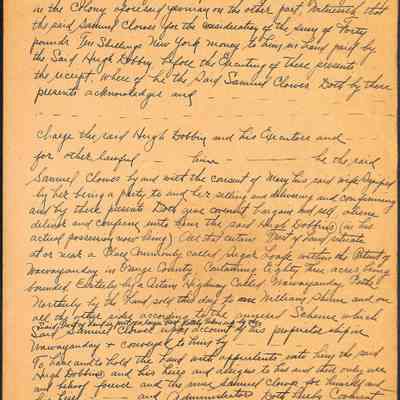 in the Colony aforesaid yeoman on the other part, Witnesseth that
the said Samuel Clowes for the consideration of the sum of Forty
pounds Ten Shillings New York money to him in hand paid by
the Said Hugh Dobbin before the Executing of these presents
the receipt where of he the Said Samuel Clowes Doth by these
presents acknowledge and
Charge the said Hugh Dobbin and his Executors and
for other lawful time he the said
Samuel Clowes by and with the consent of Mary his said wife
by her being a party to and her selling and delivering and confirming
and by these presents Doth give covenant bargain and sell, aliene
deliver and confirm unto him the said Hugh Dobbin (in his
actual possession now being) All that certain Tract of land situate
at or near a Place Commonly called Sugar Loafe within the Patent of
Wawayanday in Orange County, Containing Eighty three acres being
bounded Easterly by a Certain Highway Called Wawayanday Path
Northerly by the Land sold this day to one William and on
all the other sides according to the
said Samuel Clowes upon account of his proprietorship in
Wawayanday & conveyed to him by
To have and to hold the Land with appurtenants unto him the said
Hugh Dobbin and his heirs and assigns to his and their only use
and behoof forever and the said Samuel Clowes for himself and
his heirs and Administrators Doth hereby Covenant